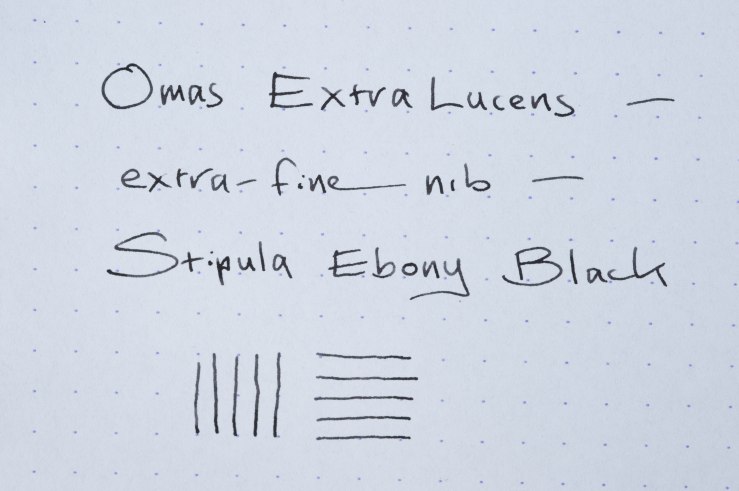 Omas Extra Lucens —
extra-fine nib —
Stipula Ebony Black